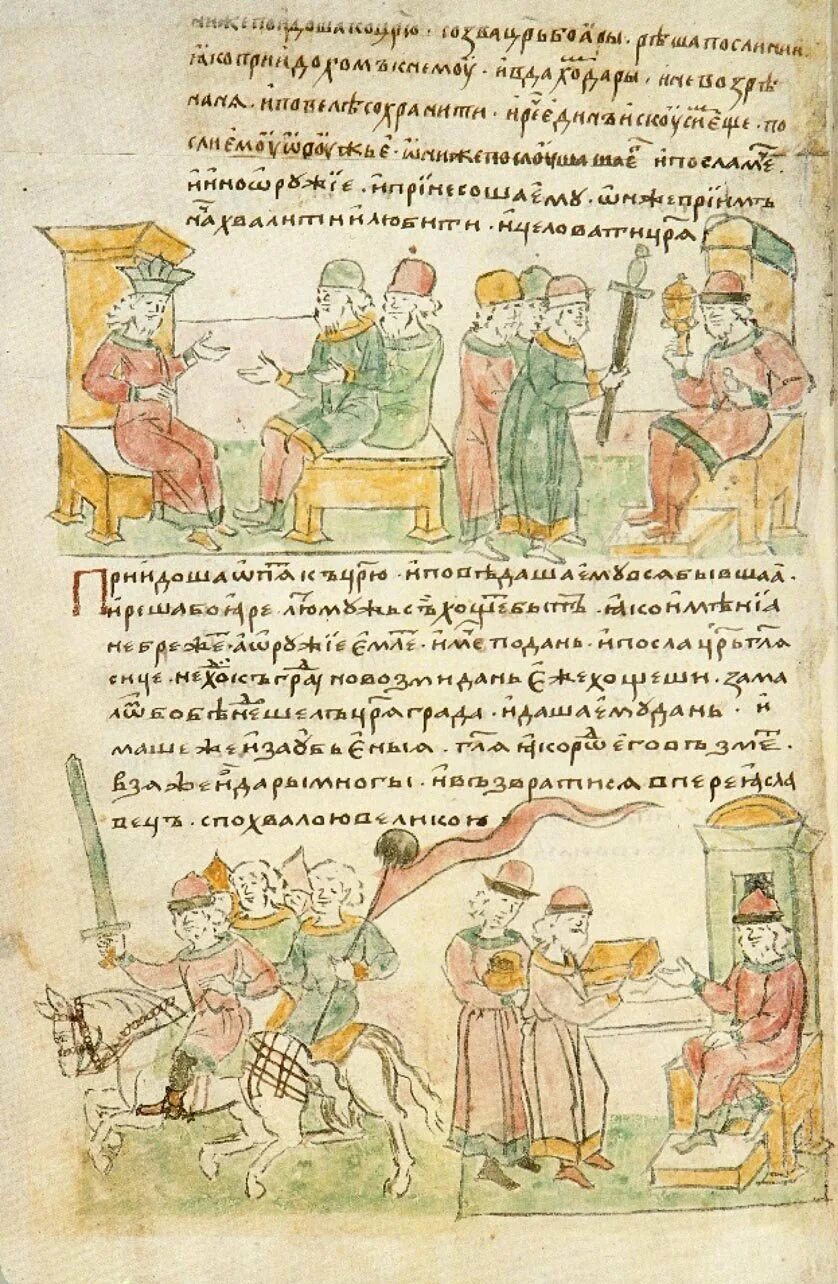 ѡниже поидоша ко црю · созва црь боѧры · рѣша послании
ꙗко приидохомъ к немоу · и вдахо дары · и не возрѣ
на нѧ · и повелѣ сохранити · и рече единъ искоуси еще · по
сли емоу ѡроужье · ѡниже послоушаша е и послаша ему
ии но ѡружїе · и принесоша ему · ѡнже прїимъ
нача хвалити и любити · и целовати црѧ
Приидоша ѡпѧ къ црю · и поведаша ему всѧ бывшаа ·
и реша боꙗре лю мужь съ хоще быть · ꙗко имѣнїа
небреже · а ѡружїе емле · имисѧ по дань · и посла црь глѧ
сице · не ходи къ граду но возми дань еже хощеши · за ма
лѡ бо бѣ не шелъ црѧграда · и даша ему дань · и
маше же и за убьеныѧ · глѧ ꙗко рѡ его възме ·
взѧ же и дары многы · и възвратисѧ в Переꙗсла
вець · с похвалою великою